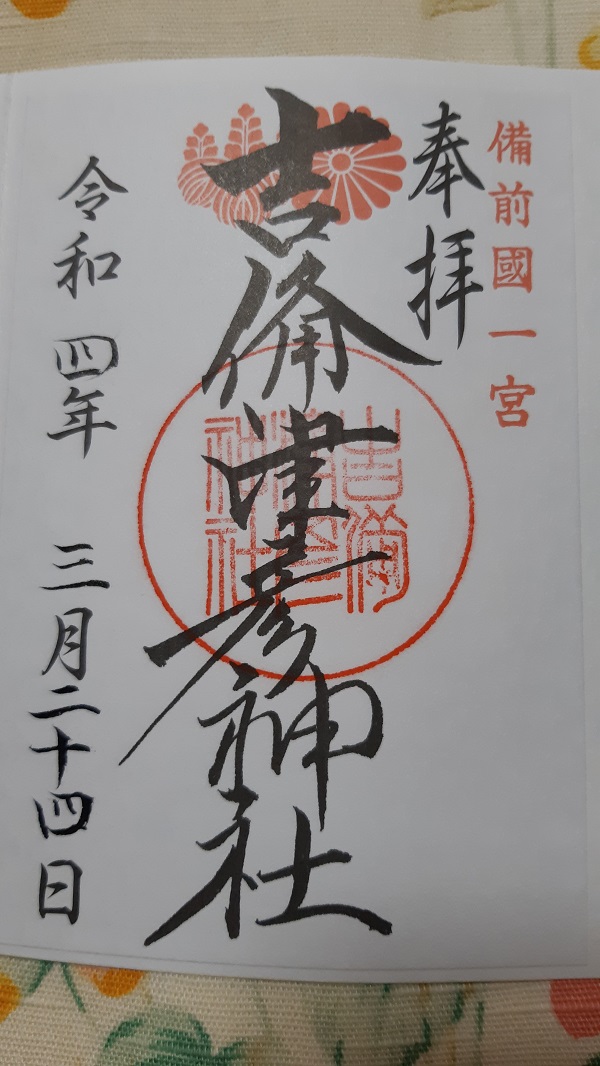 備前國一宮
奉拝
吉備津彦神社
吉備
津彦
神社
令和四年三月二十四日